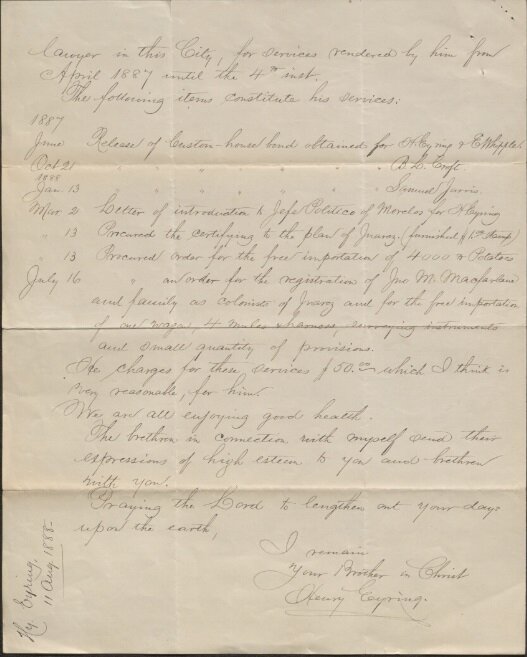 lawyer in this City, for services rendered by him from
April 1887 until the 4th inst.
The following items constitute his services:
1887
June Release of Custom-house bond obtained for H. Eyring & E Whipple.
Oct 21 " " " " " " B. L. Croft.
1888
Jan. 13 " " " " " " Samuel Jarvis.
Mar. 2 Letter of introduction to Jefe Politico of Morelos for H Eyring
" 13 Procured the certifying to the plan of Juarez. (furnished $1.00 stamp)
" 13 Procured order for the free importation of 4000 # Potatoes
July 16 " an order for the registration of Jno. M. Macfarlane
and family as colonists of Juarez and for the free importation
of one wagon, 4 mules & harness, surveying instruments
and small quantity of provisions.
He charges for these services $50.00 which I think is
very reasonable, for him.
We are all enjoying good health.
The brethren in connection with myself send their
expressions of high esteem to you and brethren
with you.
Praying the Lord to lengthen out your days
upon the earth,
I remain
Your Brother in Christ
Henry Eyring.
Hy. Eyring.
11 Aug. 1888.